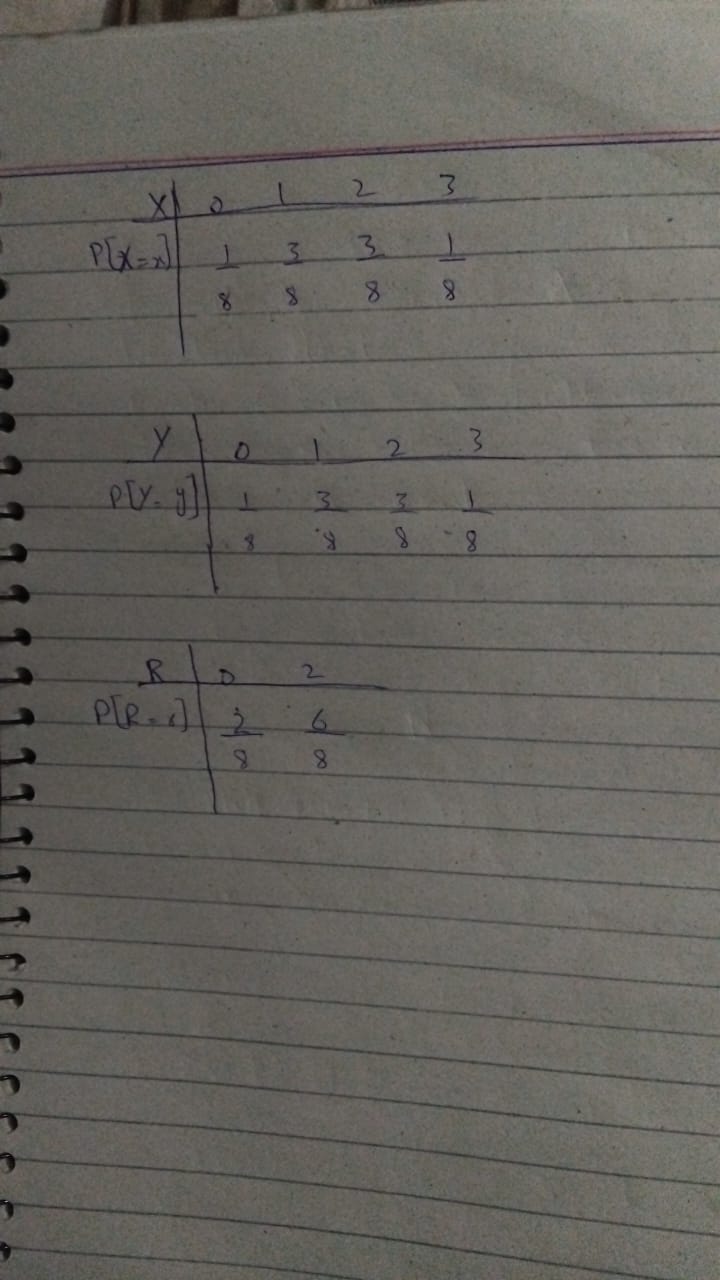 X 0 1 2 3
P[X=x] 1/8 3/8 3/8 1/8
Y 0 1 2 3
P[Y=y] 1/8 3/8 3/8 1/8
R 0 2
P[R=r] 2/8 6/8